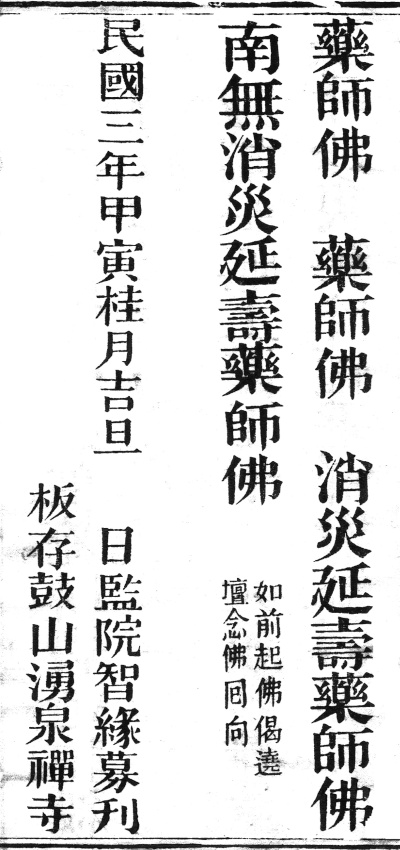 藥師佛　藥師佛　消災延壽藥師佛
南無消災延壽藥師佛
如前起佛偈遶
壇念佛囘向
民國三年甲寅桂月吉旦　日監院智緣募刊
板存鼓山湧泉禪寺